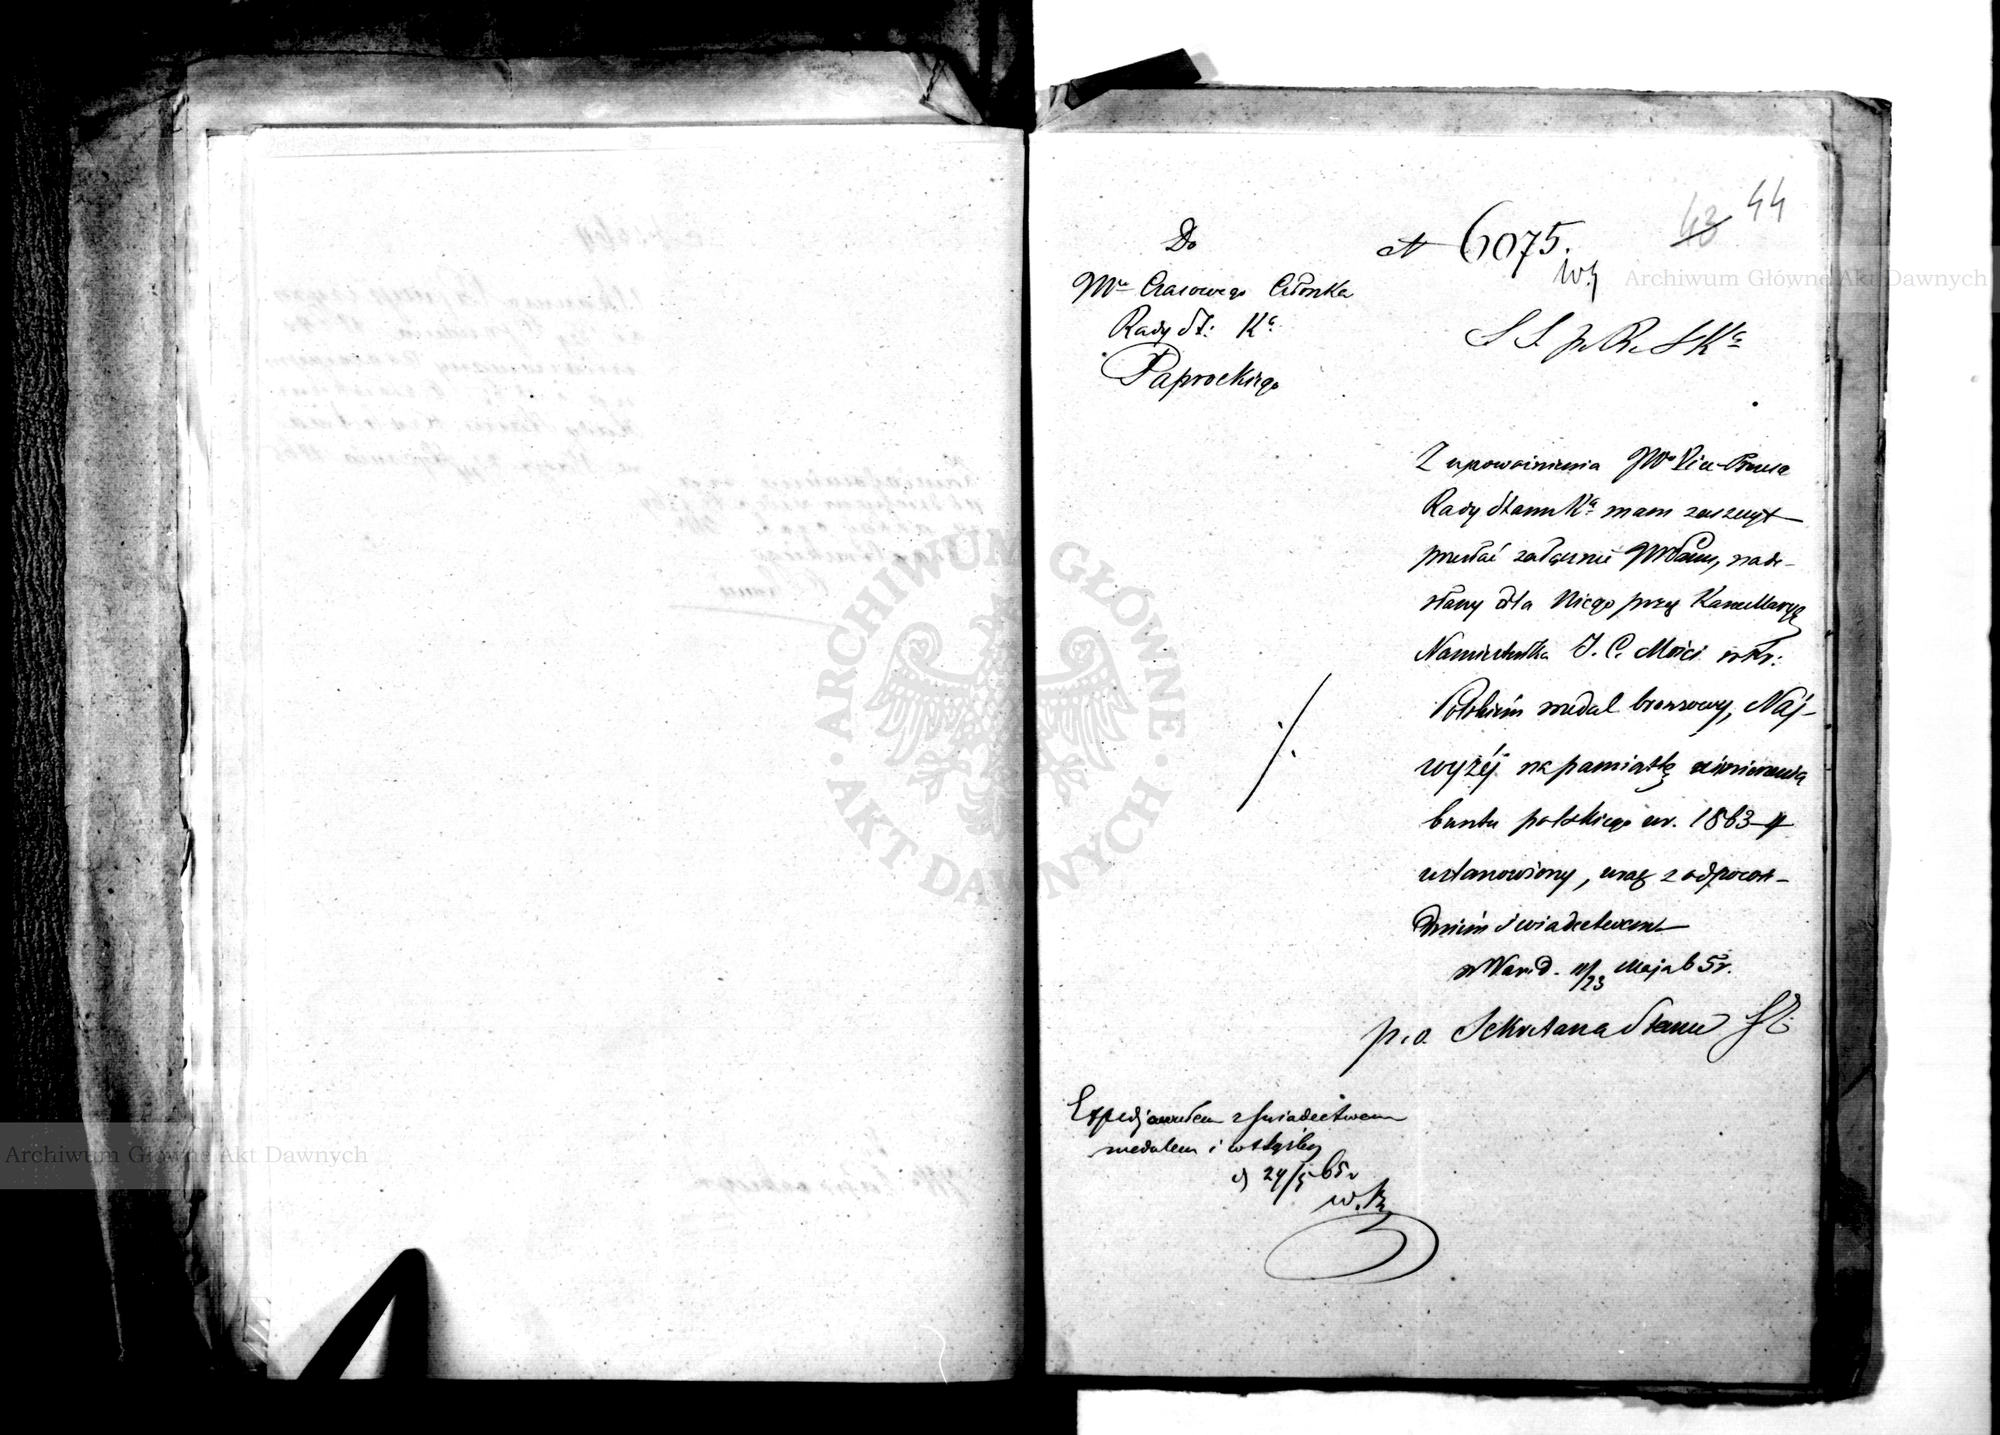 43 44
Do
JWº Czasowego Członka
Rady St: Kª
Paprockiego
N 6075.
S S. p. R. S Kª
Z upoważnienia JWº Vice-Prezesa
Rady Stanu Kª mam zaszczyt
przesłać załącznie JWPanu, nade-
słany dla Niego przez Kancellaryę
Namiestnika J. C. Mości w Kr:
Polskim medal bronzowy, Naj-
wyżéj na pamiątkę uśmierzenia
buntu polskiego w r. 1863-4
ustanowiony, wraz z odpowie-
dniém świadectwem
w War. d. 11/23 Maja 65 r.
p. o. Sekretarza Stanu
Expedjowałem z świadectwem
medalem i wstążką
d 24/5 65 r
Archiwum Główne Akt Dawnych
Archiwum Główne Akt Dawnych
ARCHIWUM GŁÓWNE
AKT DAWNYCH